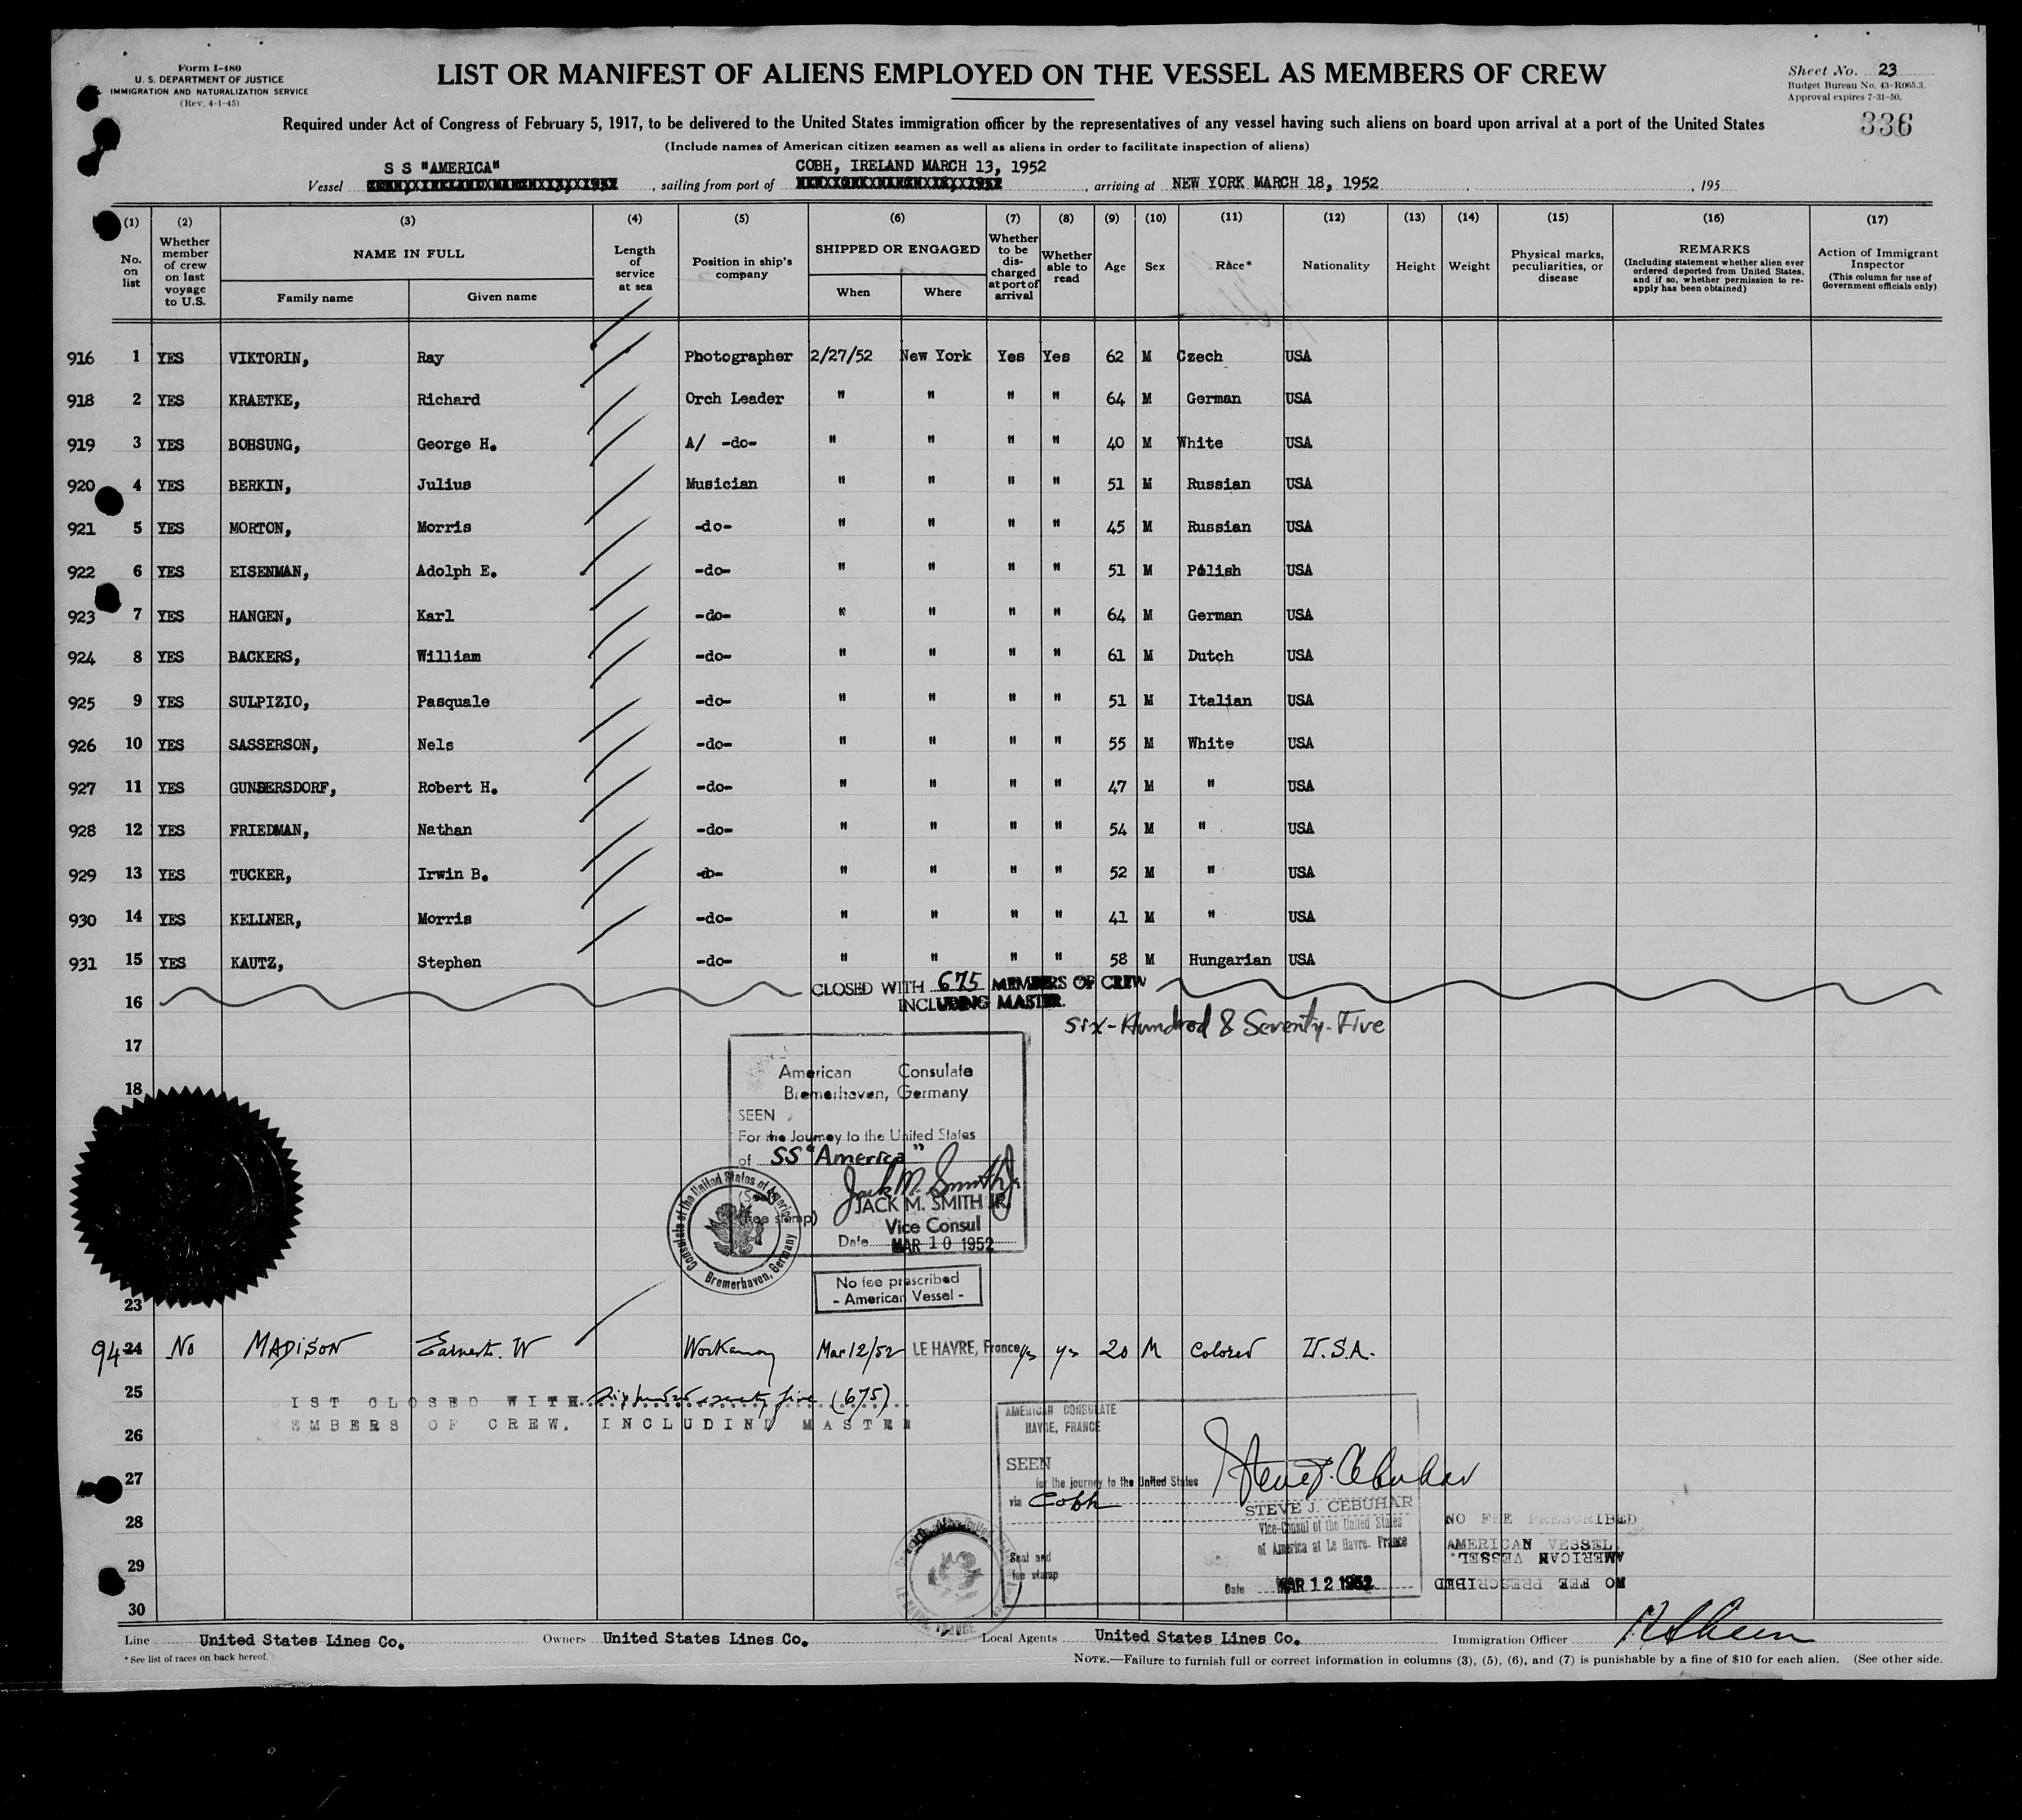 Form I-480
U. S. DEPARTMENT OF JUSTICE
IMMIGRATION AND NATURALIZATION SERVICE
(Rev. 4-1-45)
LIST OR MANIFEST OF ALIENS EMPLOYED ON THE VESSEL AS MEMBERS OF CREW
Sheet No. 23
Budget Bureau No. 43-R065.3.
Approval expires 7-31-50.
336
Required under Act of Congress of February 5, 1917, to be delivered to the United States immigration officer by the representatives of any vessel having such aliens on board upon arrival at a port of the United States
(Include names of American citizen seamen as well as aliens in order to facilitate inspection of aliens)
S S "AMERICA" COBH, IRELAND MARCH 13, 1952
Vessel , sailing from port of , arriving at NEW YORK MARCH 18, 1952 , 195
(1) No. on list
(2) Whether member of crew on last voyage to U.S.
(3) NAME IN FULL
Family name Given name
(4) Length of service at sea
(5) Position in ship's company
(6) SHIPPED OR ENGAGED
When Where
(7) Whether to be discharged at port of arrival
(8) Whether able to read
(9) Age
(10) Sex
(11) Race*
(12) Nationality
(13) Height
(14) Weight
(15) Physical marks, peculiarities, or disease
(16) REMARKS
(Including statement whether alien ever ordered deported from United States, and if so, whether permission to reapply has been obtained)
(17) Action of Immigrant Inspector
(This column for use of Government officials only)
916 1 YES VIKTORIN, Ray Photographer 2/27/52 New York Yes Yes 62 M Czech USA
918 2 YES KRAETKE, Richard Orch Leader " " " " 64 M German USA
919 3 YES BOHSUNG, George H. A/ -do- " " " " 40 M White USA
920 4 YES BERKIN, Julius Musician " " " " 51 M Russian USA
921 5 YES MORTON, Morris -do- " " " " 45 M Russian USA
922 6 YES EISENMAN, Adolph E. -do- " " " " 51 M Polish USA
923 7 YES HANGEN, Karl -do- " " " " 64 M German USA
924 8 YES BACKERS, William -do- " " " " 61 M Dutch USA
925 9 YES SULPIZIO, Pasquale -do- " " " " 51 M Italian USA
926 10 YES SASSERSON, Nels -do- " " " " 55 M White USA
927 11 YES GUNDERSDORF, Robert H. -do- " " " " 47 M " USA
928 12 YES FRIEDMAN, Nathan -do- " " " " 54 M " USA
929 13 YES TUCKER, Irwin B. -do- " " " " 52 M " USA
930 14 YES KELLNER, Morris -do- " " " " 41 M " USA
931 15 YES KAUTZ, Stephen -do- " " " " 58 M Hungarian USA
16 CLOSED WITH 675 MEMBERS OF CREW
INCLUDING MASTER.
Six-Hundred & Seventy-Five
17
18
American Consulate
Bremerhaven, Germany
SEEN
For the Journey to the United States
of SS "America"
(Seal)
(fee stamp)
Jack M. Smith Jr
JACK M. SMITH JR.
Vice Consul
Date MAR 10 1952
Consulate of the United States of America
Bremerhaven, Germany
No fee prescribed
- American Vessel -
23
94 24 No MADISON Earnest. W Workaway Mar 12/52 LE HAVRE, France ys ys 20 M Colored U.S.A.
25
IST CLOSED WITH six hundred seventy five (675)
EMBERS OF CREW, INCLUDIND MASTER
26
27
28
29
30
AMERICAN CONSULATE
HAVRE, FRANCE
SEEN
for the journey to the United States
via Cobh
Steve J. Cebuhar
STEVE J. CEBUHAR
Vice-Consul of the United States
of America at Le Havre. France
Seal and
fee stamp
Date MAR 12 1952
NO FEE PRESCRIBED
AMERICAN VESSEL.
AMERICAN VESSEL.
NO FEE PRESCRIBED
Line United States Lines Co. Owners United States Lines Co. Local Agents United States Lines Co. Immigration Officer
*See list of races on back hereof.
NOTE.—Failure to furnish full or correct information in columns (3), (5), (6), and (7) is punishable by a fine of $10 for each alien. (See other side.